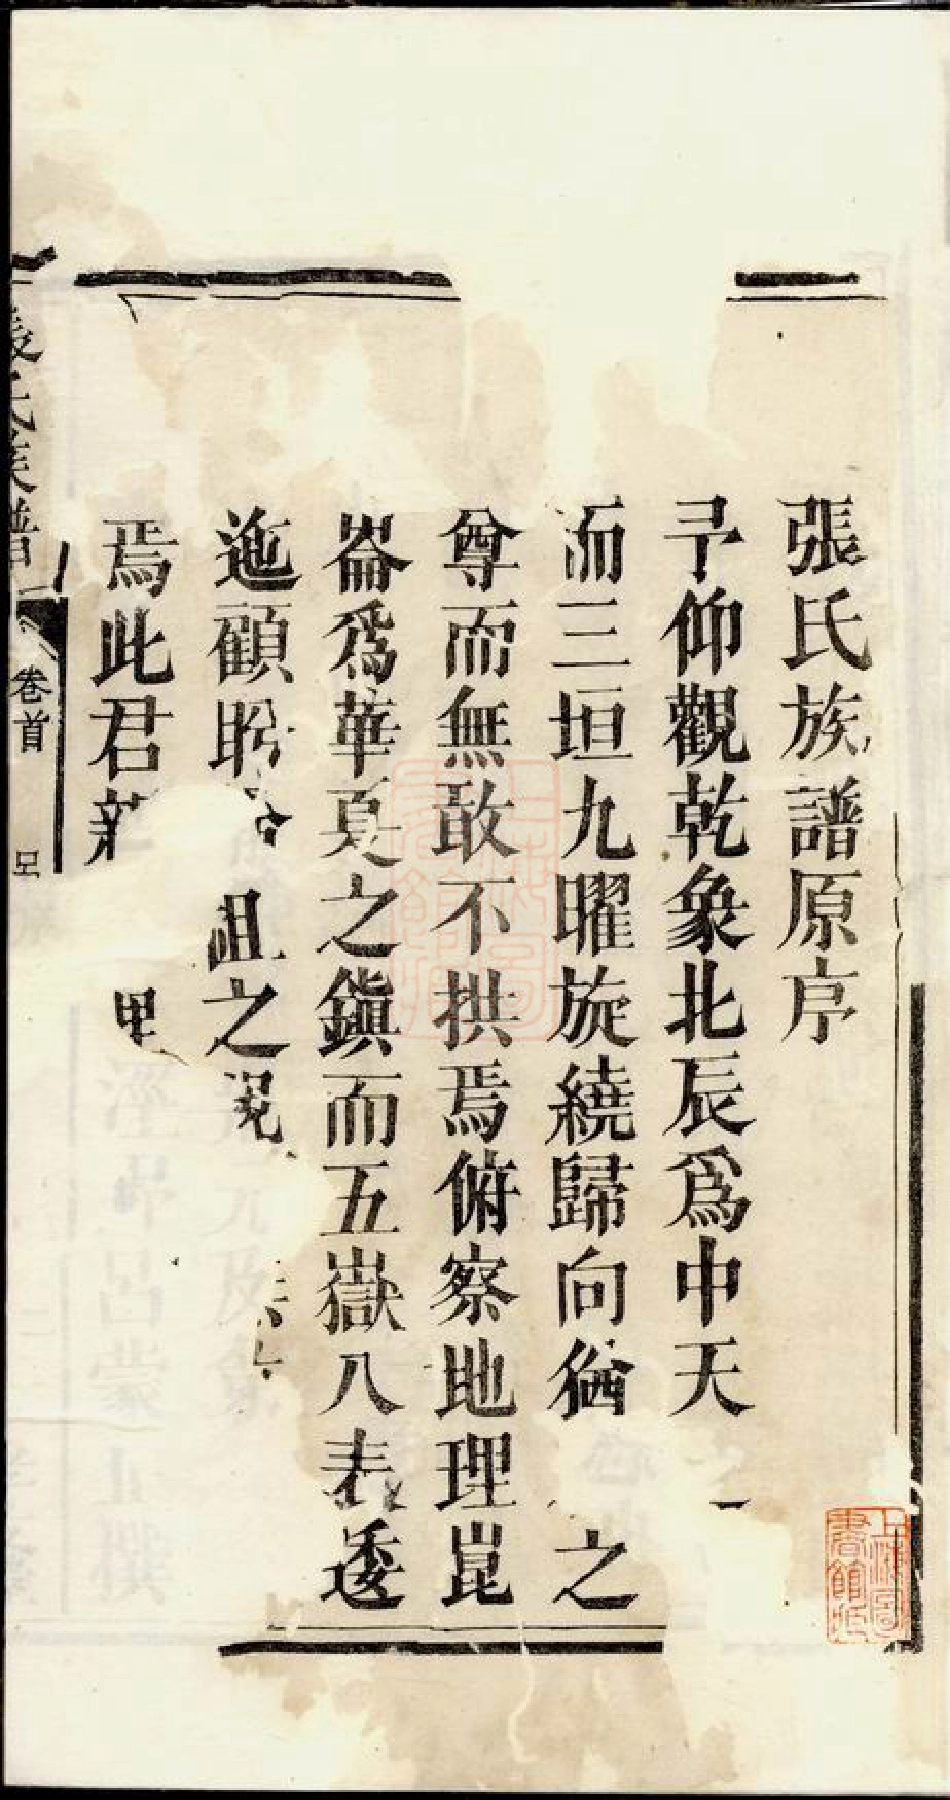 張氏族譜原序
予仰觀乾象北辰爲中天
而三垣九曜旋繞歸向猶之
尊而無敢不拱焉俯察地理崑
崙爲華夏之鎮而五嶽八表逶
迤顧盼祖之
焉此君
張氏族譜
卷首
上海圖書館藏